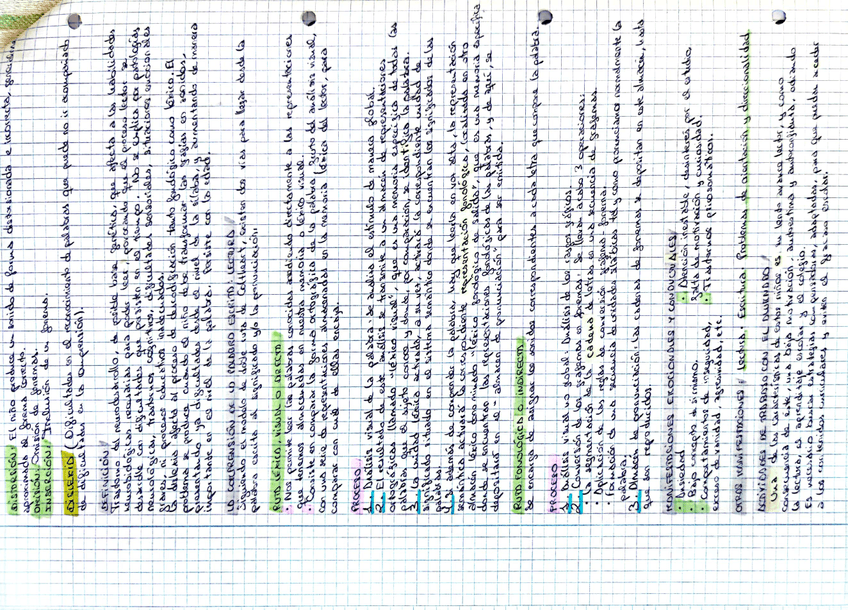 DISTORSIÓN: El niño produce un sonido de forma distorsionada e incorrecta, generalmente
aproximada de forma correcta.
OMISIÓN: Omisión de fonemas.
INSERCIÓN: Inclusión de un fonema.
DISLEXIA (Dificultades en el reconocimiento de palabras que puede no ir acompañado
de dificultades en la comprensión).
DEFINICIÓN
Trastorno del neurodesarrollo, de posible base genética, que afecta a las habilidades
neurobiológicas necesarias para poder leer, provocando que el proceso lector se
desarrolle con dificultades que persisten en el tiempo. No se explica por patologías
neurológicas, trastornos cognitivos, dificultades sensoriales, situaciones emocionales
graves, ni procesos educativos inadecuados.
La dislexia afecta al proceso de decodificación tanto fonológico como léxico. El
problema se produce cuando el niño debe transformar las grafías en sonidos,
presentando ya dificultades en el nivel de sílabas, y aumentando de manera
importante en el nivel de la palabra. Persiste con la edad.
LA COMPRENSIÓN DE LO MISMO ESCRITO/LECTURA
Siguiendo el modelo de doble ruta de Coltheart, existen dos vías para llegar desde la
palabra escrita al significado y/o la pronunciación:
RUTA LÉXICA, VISUAL O DIRECTA
· Nos permite leer las palabras conocidas accediendo directamente a las representaciones
que tenemos almacenadas en nuestra memoria o léxico visual.
· Consiste en comparar la forma ortográfica de la palabra, fruto del análisis visual,
con una serie de representaciones almacenadas en la memoria léxica del lector, para
comprobar con cuál de ellas encaja.
PROCESO
1. Análisis visual de la palabra: se analiza el estímulo de manera global.
2. El resultado de este análisis se transmite a un almacén de representaciones
ortográficas llamado "léxico visual", que es una memoria específica de todas las
palabras que el sujeto conoce y donde, por comparación, identifica la palabra.
3. La unidad léxica activada, a su vez, activará la correspondiente unidad de
significado situada en el sistema semántico donde se encuentran los significados de las
palabras.
4. Además de comprender la palabra, hay que leerla en voz alta, la representación
semántica activará la correspondiente representación fonológica, localizada en otro
almacén léxico denominado "léxico fonológico de salida", que es una memoria específica
donde se encuentran las representaciones fonológicas de las palabras, y de aquí, se
depositan en el "almacén de pronunciación" para ser emitida.
RUTA FONOLÓGICA O INDIRECTA
Se encarga de asignar los sonidos correspondientes a cada letra que compone la palabra.
PROCESO
1. Análisis visual no global: Análisis de los rasgos gráficos.
2. Conversión de los grafemas en fonemas: Se llevan a cabo 3 operaciones:
· La segmentación de la cadena de letras en una secuencia de grafemas.
· Aplicación de las reglas de conversión grafema-fonema.
· Formación de una secuencia de unidades silábicas tal y como pronunciamos normalmente la
palabra.
3. Almacén de pronunciación: Las cadenas de fonemas se depositan en este almacén, hasta
que son reproducidos.
MANIFESTACIONES EMOCIONALES Y CONDUCTUALES
· Ansiedad
· Bajo concepto de sí mismo.
· Comportamientos de inseguridad,
exceso de vanidad, agresividad, etc.
· Atención inestable, desinterés por el estudio,
falta de motivación y curiosidad.
· Trastornos psicosomáticos.
OTRAS MANIFESTACIONES / Lectura. Escritura. Problemas de orientación y direccionalidad.
ACTIVIDADES DE TRABAJO CON EL ALUMNADO
Una de las características de estos niños es su lento avance lector, y como
consecuencia de este, una baja motivación, autoestima y autoconfianza, odiando
la lectura, el aprendizaje escolar y el colegio.
Es necesario buscar estrategias compensatorias, adaptadas, para que puedan acceder
a los contenidos curriculares y eviten el fracaso escolar.